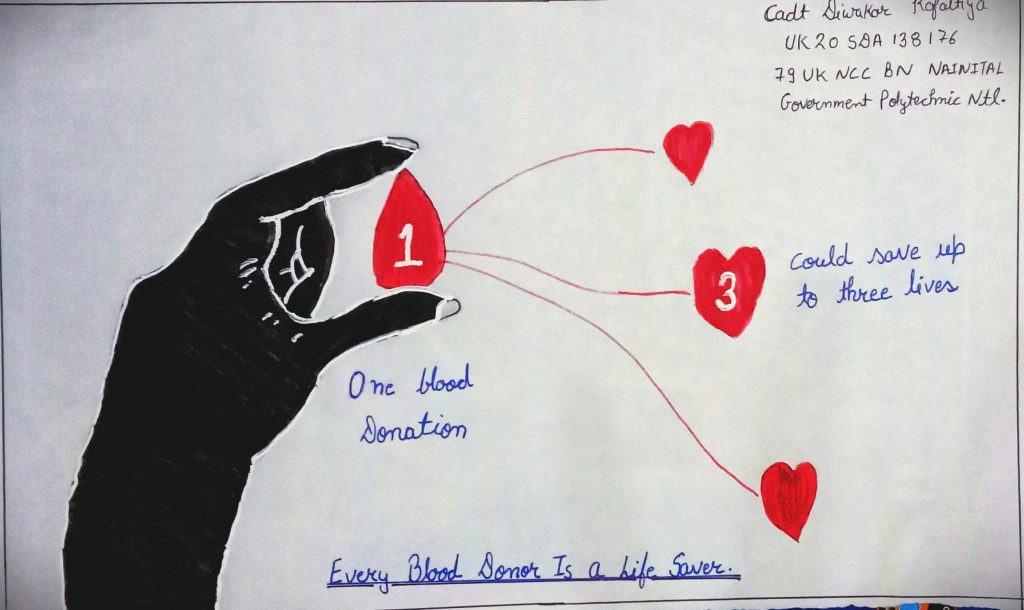 Cadt Diwakar
UK20 SDA 138176
79 UK NCC BN NAINITAL
Government Polytechnic Ntl.
1
3
could save up
to three lives
One blood
Donation
Every Blood Donor Is a Life Saver.